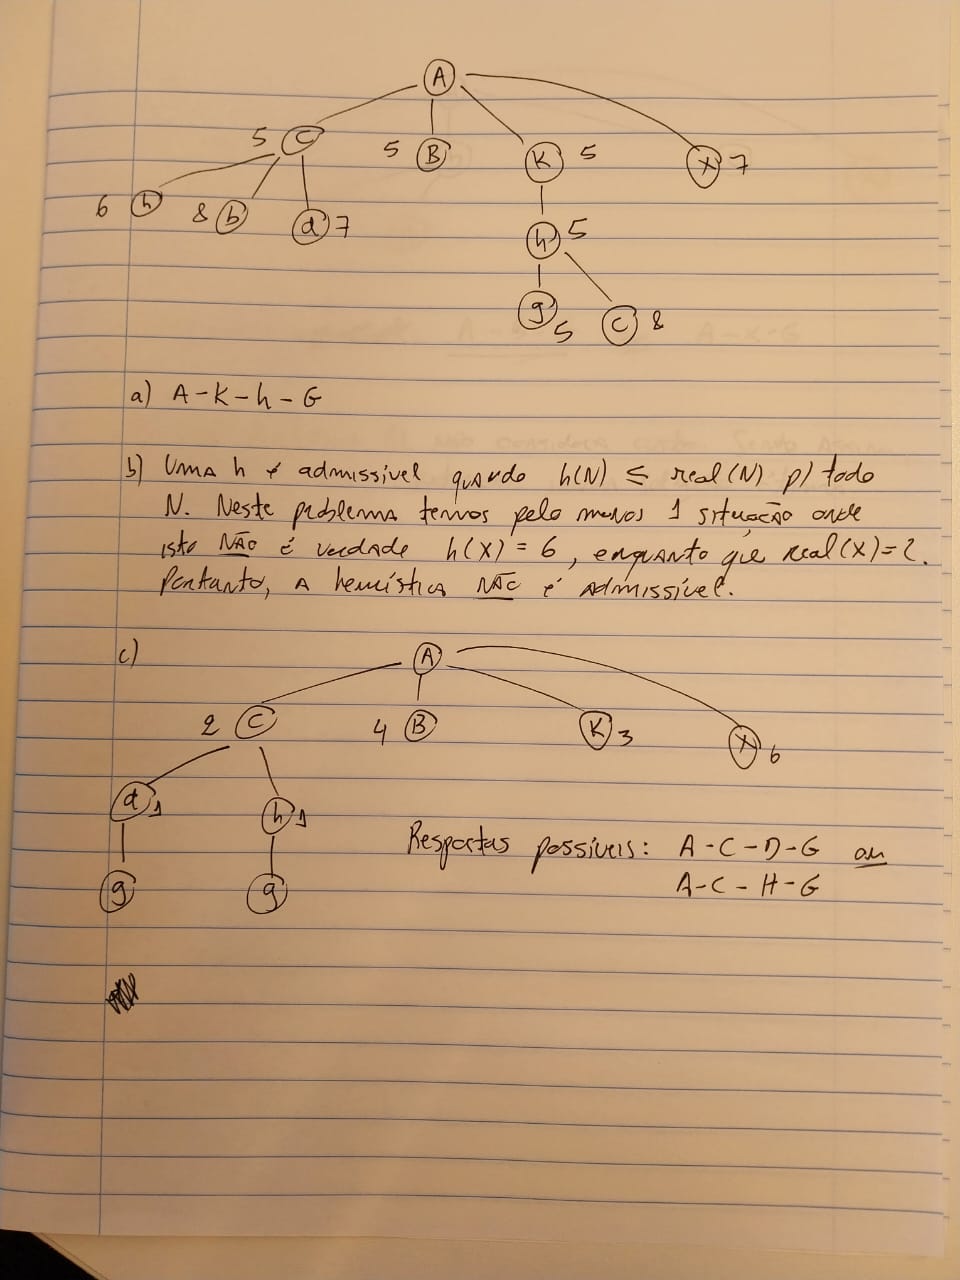 A
5 C 5 B K 5 X 7
6 h 8 b d 7 h 5
g 5 C 8
a) A-K-h-G
b) Uma h é admissível quando h(N) ≤ real(N) p/ todo
N. Neste problema temos pelo menos 1 situação onde
isto NÃO é verdade h(X) = 6, enquanto que real(X)=2.
Portanto, a heurística NÃO é admissível.
c) A
2 C 4 B K 3 X 6
d 1 h 1
Respostas possíveis: A-C-D-G ou
g g A-C-H-G